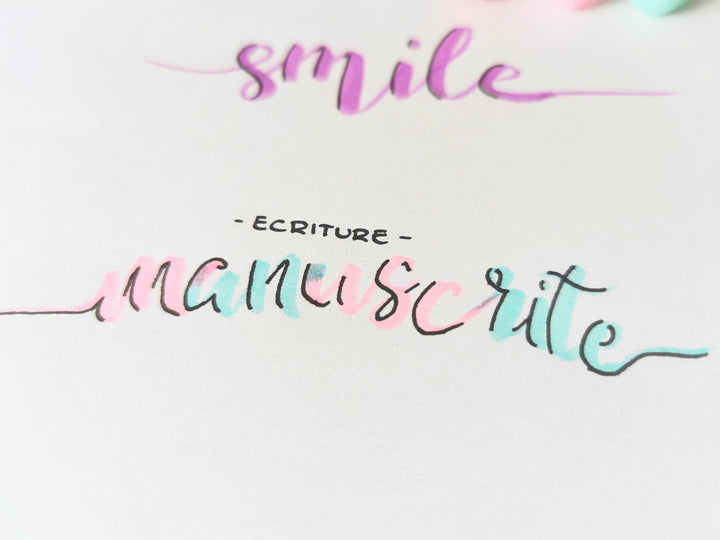 smile
- ECRITURE -
manuscrite